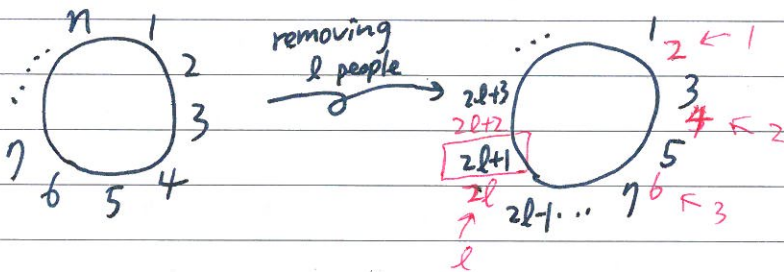 n 1
2
3
4
5
6
7
removing
l people
1
2 ← 1
3
4 ← 2
5
6 ← 3
7
2l-1 ...
2l
↑
l
2l+1
2l+2
2l+3
...